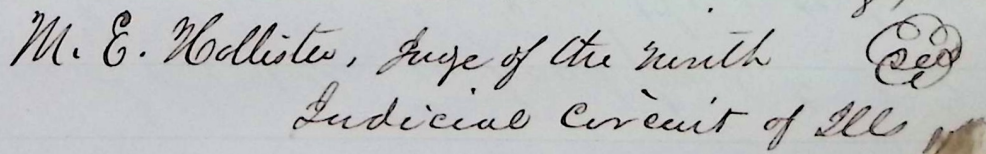 M. E. Hollister, Juge of the ninth seal
Judicial Circuit of Ills